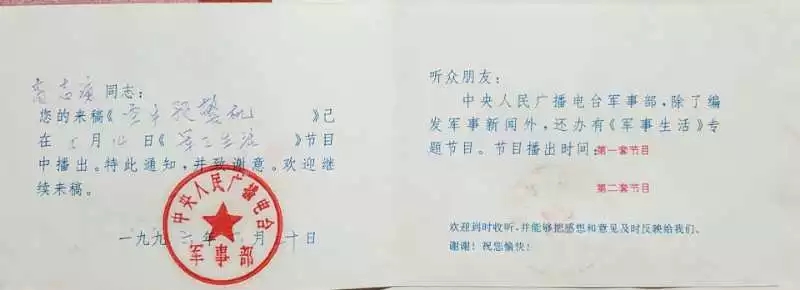 同志：
您的来稿《》已
在 月 日《军事生活》节目
中播出。特此通知，并致谢意。欢迎继
续来稿。
中央人民广播电台
军事部
一九九 年 月 十日
听众朋友：
中央人民广播电台军事部，除了编
发军事新闻外，还办有《军事生活》专
题节目。节目播出时间：第一套节目
第二套节目
欢迎到时收听，并能够把感想和意见及时反映给我们、
谢谢！祝您愉快！